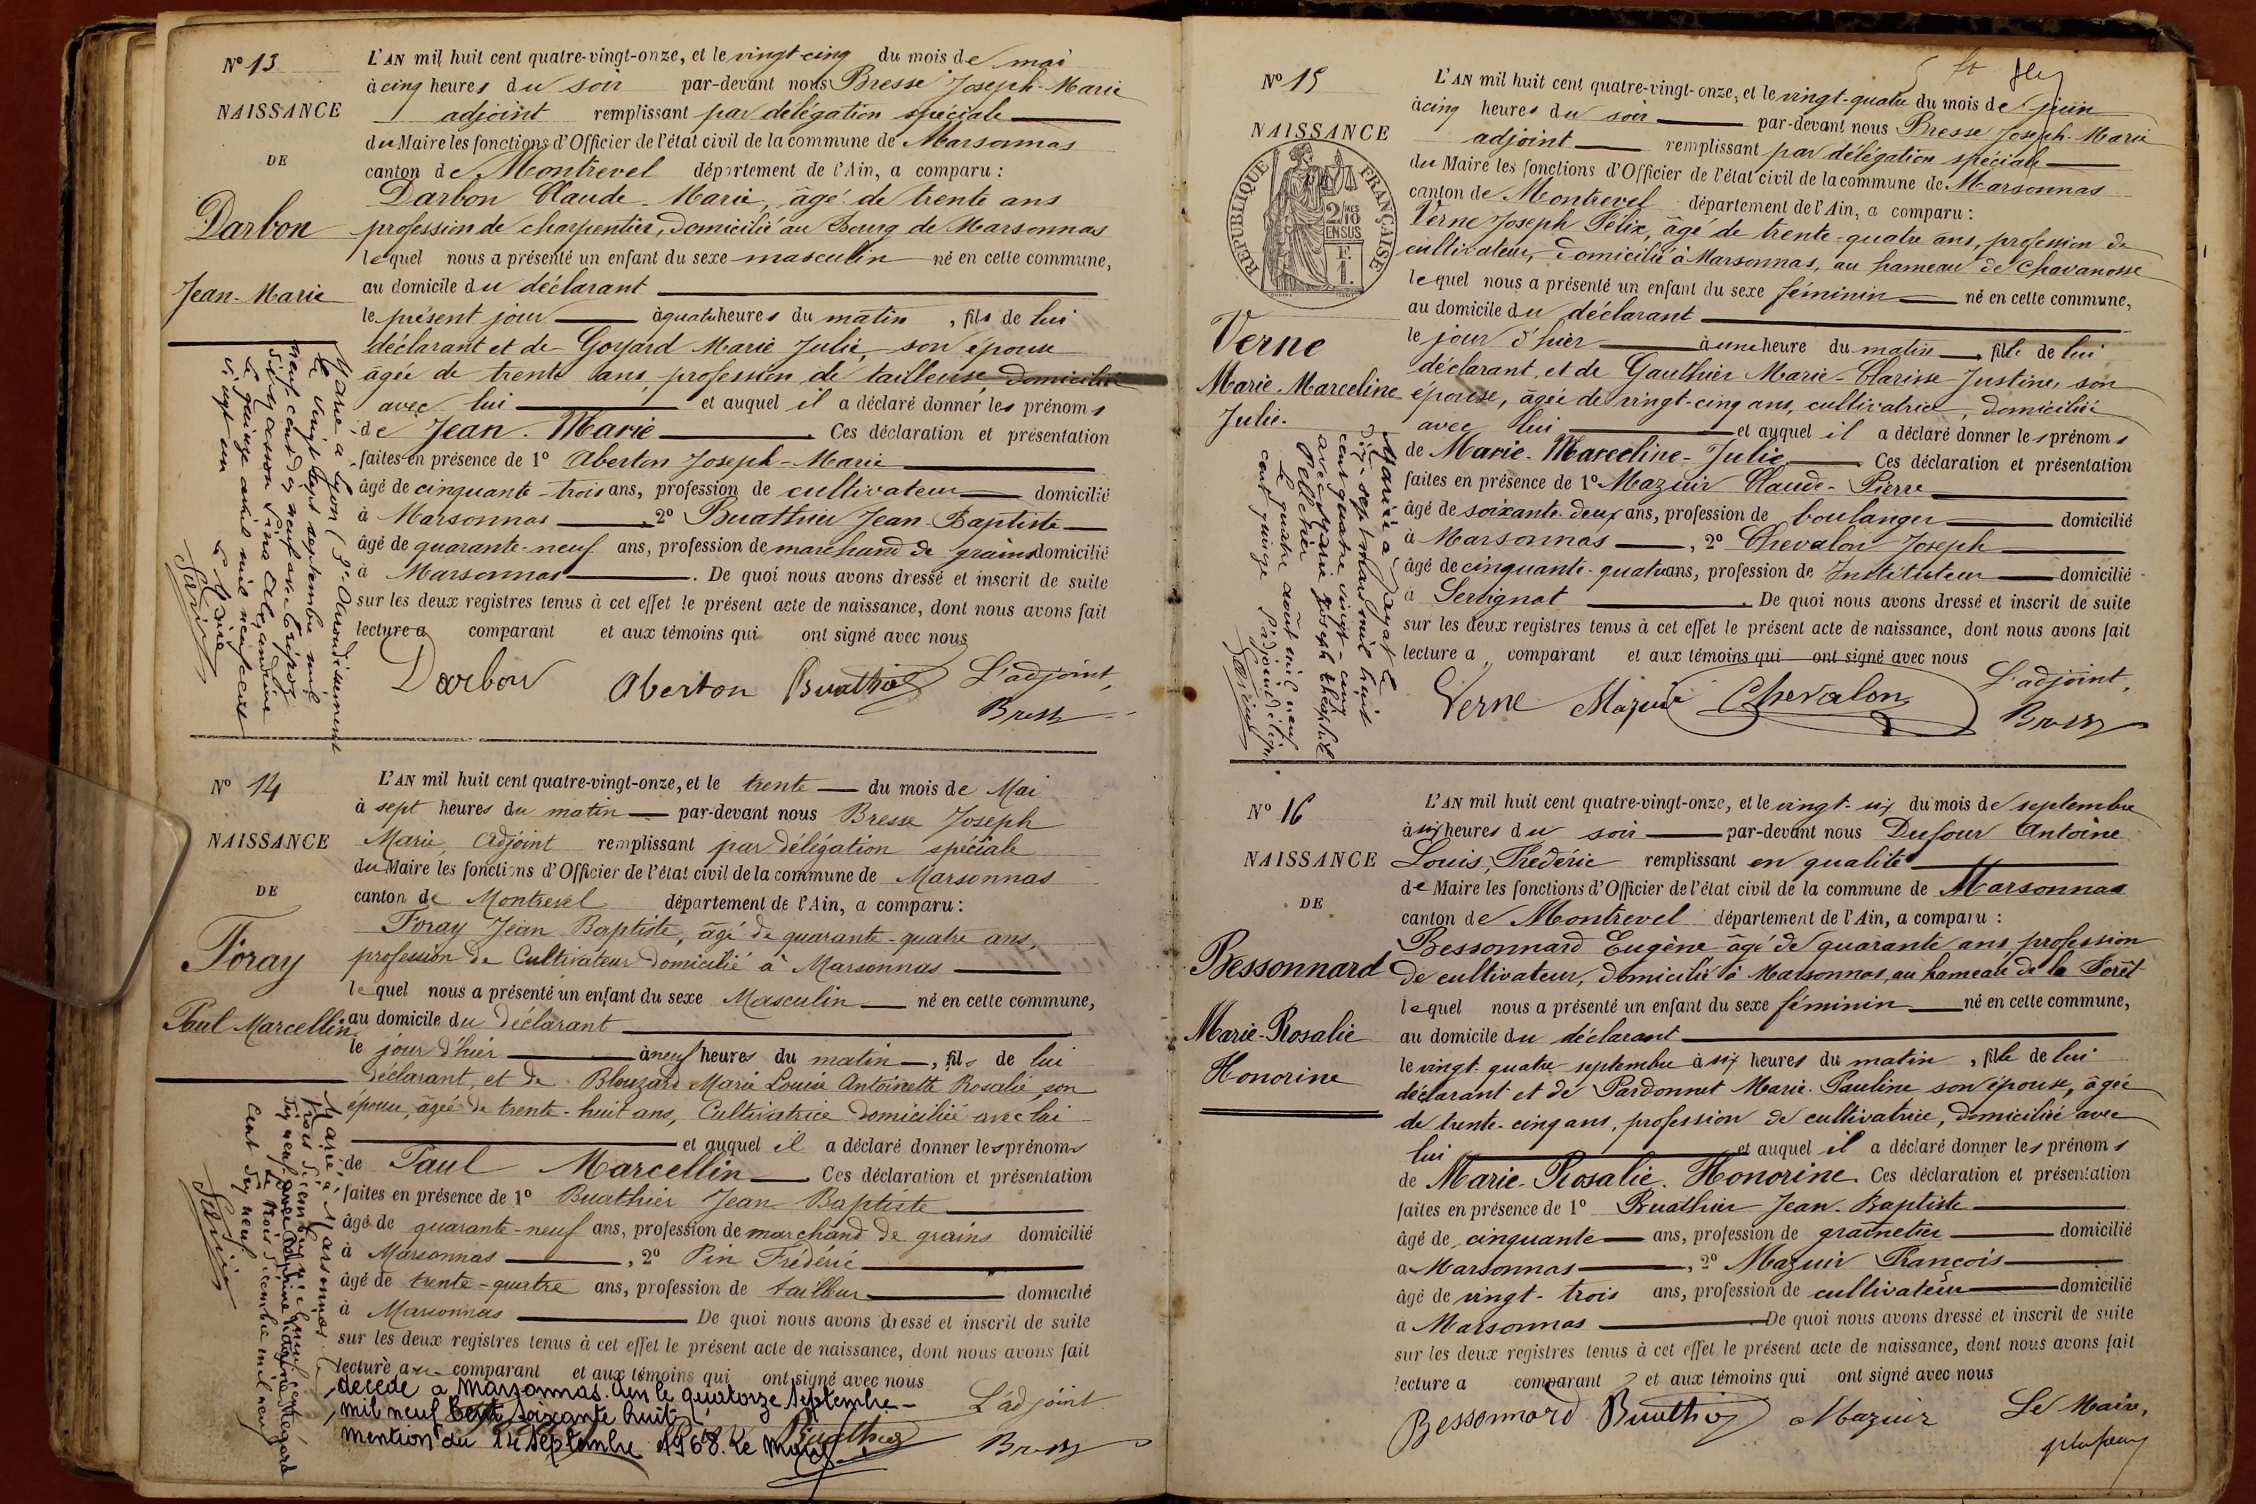 N° 13
NAISSANCE
DE
Darbon
Jean-Marie
L'AN mil huit cent quatre-vingt-onze, et le vingt-cinq du mois de mai
à cinq heures du soir par-devant nous Bresse Joseph-Marie
adjoint remplissant par délégation spéciale
du Maire les fonctions d'Officier de l'état civil de la commune de Marsonnas
canton de Montrevel département de l'Ain, a comparu :
Darbon Claude-Marie, âgé de trente ans
profession de charpentier, domicilié au Bourg de Marsonnas
lequel nous a présenté un enfant du sexe masculin né en cette commune,
au domicile du déclarant
le présent jour à quatre heures du matin, fils de lui
déclarant et de Goyard Marie Julie, son épouse
âgée de trente ans, profession de tailleuse domiciliée
avec lui et auquel il a déclaré donner les prénoms
de Jean-Marie. Ces déclaration et présentation
faites en présence de 1° Aberton Joseph-Marie
âgé de cinquante-trois ans, profession de cultivateur domicilié
à Marsonnas, 2° Buathier Jean-Baptiste
âgé de quarante-neuf ans, profession de marchand de grains domicilié
à Marsonnas. De quoi nous avons dressé et inscrit de suite
sur les deux registres tenus à cet effet le présent acte de naissance, dont nous avons fait
lecture a comparant et aux témoins qui ont signé avec nous
Darbon Aberton Buathier L'adjoint,
Bresse
Marié à Lyon (3e Arrondissement
le vingt sept septembre mil
neuf cent dix neuf avec
Alexandrine
Le quinze avril mil neuf cent
vingt un
Le Maire
N° 14
NAISSANCE
DE
Foray
Paul Marcellin
L'AN mil huit cent quatre-vingt-onze, et le trente du mois de Mai
à sept heures du matin par-devant nous Bresse Joseph
Marie, Adjoint remplissant par délégation spéciale
du Maire les fonctions d'Officier de l'état civil de la commune de Marsonnas
canton de Montrevel département de l'Ain, a comparu :
Foray Jean Baptiste, âgé de quarante-quatre ans,
profession de Cultivateur domicilié à Marsonnas
lequel nous a présenté un enfant du sexe Masculin né en cette commune,
au domicile du déclarant
le jour d'hier à neuf heures du matin, fils de lui
déclarant, et de Blouzard Marie Louise Antoinette Rosalie, son
épouse, âgée de trente-huit ans, Cultivatrice domiciliée avec lui
et auquel il a déclaré donner les prénoms
de Paul Marcellin. Ces déclaration et présentation
faites en présence de 1° Buathier Jean Baptiste
âgé de quarante-neuf ans, profession de marchand de grains domicilié
à Marsonnas, 2° Pin Frédéric
âgé de trente-quatre ans, profession de tailleur domicilié
à Marsonnas De quoi nous avons dressé et inscrit de suite
sur les deux registres tenus à cet effet le présent acte de naissance, dont nous avons fait
lecture au comparant et aux témoins qui ont signé avec nous
décédé à Marsonnas. Ain le quatorze Septembre
mil neuf cent soixante huit
mention du 14 Septembre 1968. Le Maire
Buathier
L'adjoint
Bresse
Marié à Marsonnas le
trois décembre mil neuf cent
dix neuf avec
Le trois décembre mil neuf
cent dix neuf
N° 15
NAISSANCE
REPUBLIQUE FRANÇAISE
Verne
Marie-Marceline
Julie.
L'AN mil huit cent quatre-vingt-onze, et le vingt-quatre du mois de juin
à cinq heures du soir par-devant nous Bresse Joseph-Marie
adjoint remplissant par délégation spéciale
du Maire les fonctions d'Officier de l'état civil de la commune de Marsonnas
canton de Montrevel département de l'Ain, a comparu :
Verne Joseph Félix, âgé de trente-quatre ans, profession de
cultivateur, domicilié à Marsonnas, au hameau de Chavanosse
lequel nous a présenté un enfant du sexe féminin né en cette commune,
au domicile du déclarant
le jour d'hier à une heure du matin, fille de lui
déclarant, et de Gauthier Marie-Clarisse Justine, son
épouse, âgée de vingt-cinq ans, cultivatrice, domiciliée
avec lui et auquel il a déclaré donner les prénoms
de Marie-Marceline-Julie Ces déclaration et présentation
faites en présence de 1° Mazuir Claude-Pierre
âgé de soixante-deux ans, profession de boulanger domicilié
à Marsonnas, 2° Chevalon Joseph
âgé de cinquante-quatre ans, profession de Instituteur domicilié
à Servignat. De quoi nous avons dressé et inscrit de suite
sur les deux registres tenus à cet effet le présent acte de naissance, dont nous avons fait
lecture a comparant et aux témoins qui ont signé avec nous
Verne Mazuir Chevalon L'adjoint,
Bresse
Mariée à Jayat le
dix-sept mars mil huit
cent quatre vingt-cinq
avec Marie Joseph Théophile
Le quatre août mil neuf
cent quinze L'adjoint délégué
N° 16
NAISSANCE
DE
Bessonnard
Marie-Rosalie
Honorine
L'AN mil huit cent quatre-vingt-onze, et le vingt-six du mois de septembre
à six heures du soir par-devant nous Dufour Antoine
Louis, Frédéric remplissant en qualité
de Maire les fonctions d'Officier de l'état civil de la commune de Marsonnas
canton de Montrevel département de l'Ain, a comparu :
Bessonnard Eugène âgé de quarante ans, profession
de cultivateur, domicilié à Marsonnas, au hameau de la Forêt
lequel nous a présenté un enfant du sexe féminin né en cette commune,
au domicile du déclarant
le vingt-quatre septembre à six heures du matin, fille de lui
déclarant et de Pardonnet Marie-Pauline son épouse, âgée
de trente-cinq ans, profession de cultivatrice, domiciliée avec
lui et auquel il a déclaré donner les prénoms
de Marie-Rosalie-Honorine. Ces déclaration et présentation
faites en présence de 1° Buathier Jean-Baptiste
âgé de cinquante ans, profession de grainetier domicilié
a Marsonnas, 2° Mazuir François
âgé de vingt-trois ans, profession de cultivateur domicilié
à Marsonnas De quoi nous avons dressé et inscrit de suite
sur les deux registres tenus à cet effet le présent acte de naissance, dont nous avons fait
lecture a comparant et aux témoins qui ont signé avec nous
Bessonnard Buathier Mazuir Le Maire,